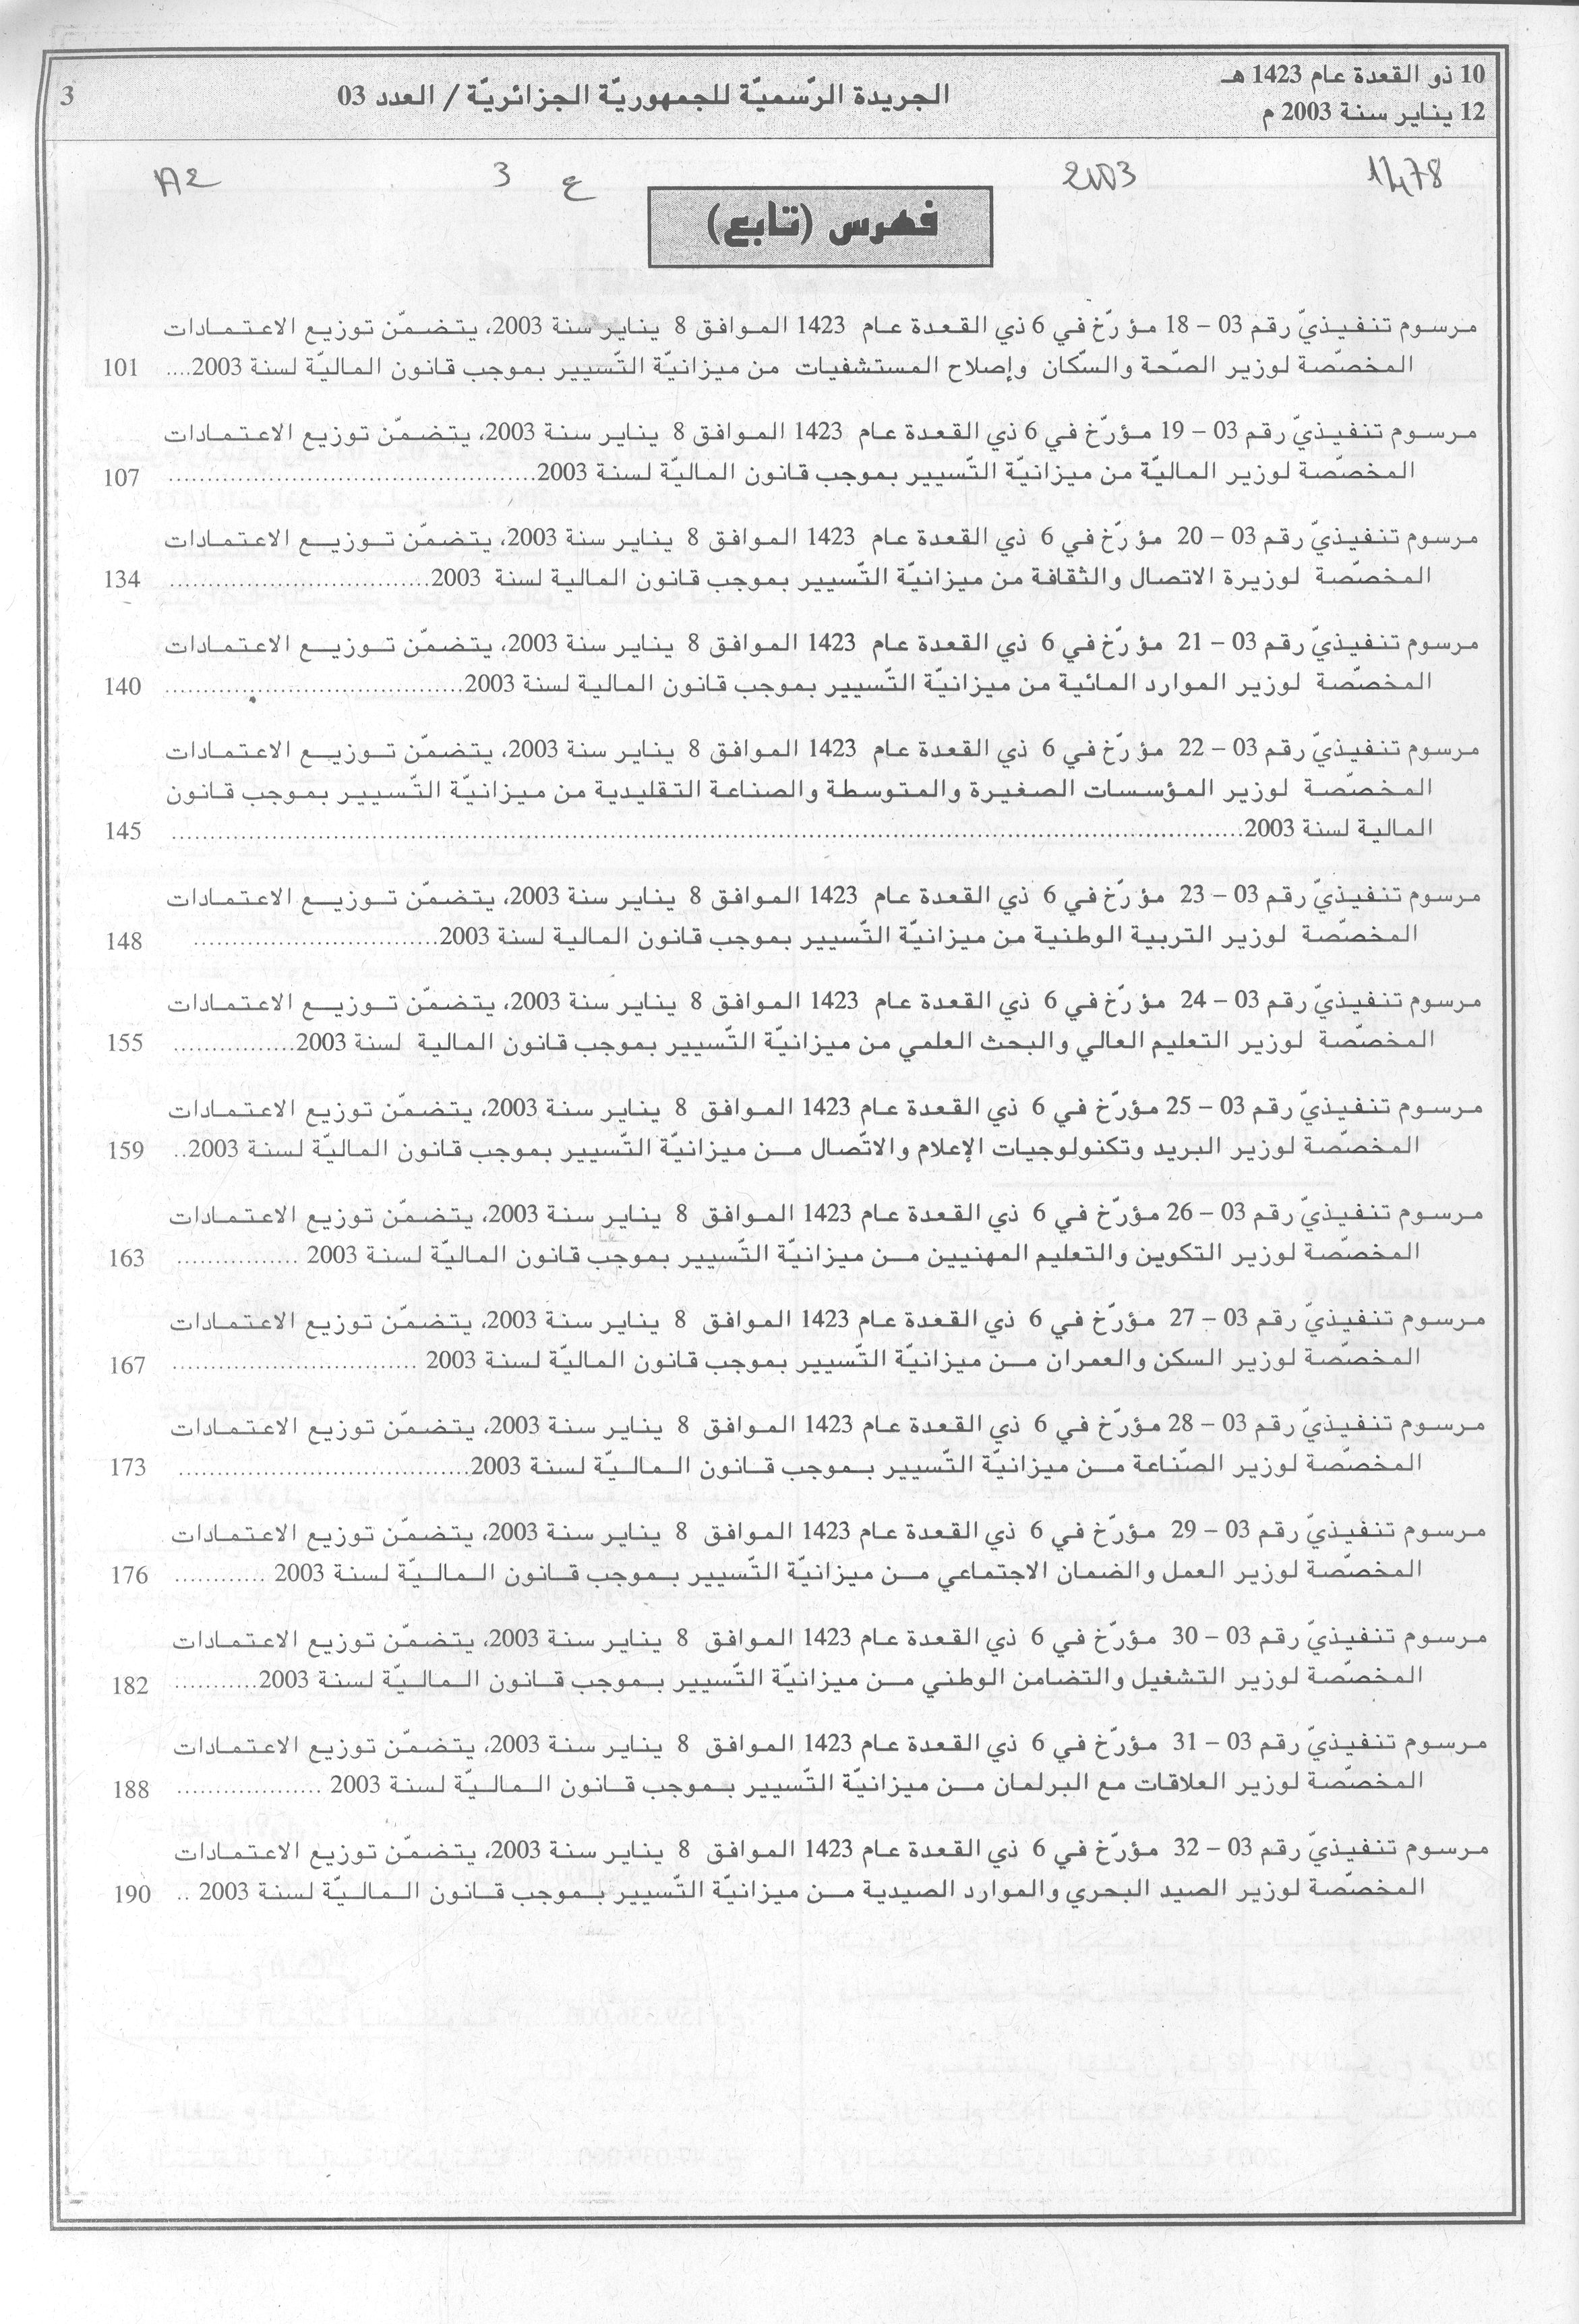 10 ذو القعدة عام 1423 هـ
12 يناير سنة 2003 م
الجريدة الرّسميّة للجمهوريّة الجزائريّة / العدد 03
3
1478 2003 ع 3 A2
فهرس (تابع)
مرسوم تنفيذيّ رقم 03 – 18 مؤرّخ في 6 ذي القعدة عام 1423 الموافق 8 يناير سنة 2003، يتضمّن توزيع الاعتمادات
المخصّصة لوزير الصّحة والسّكان وإصلاح المستشفيات من ميزانيّة التّسيير بموجب قانون الماليّة لسنة 2003.... 101
مرسوم تنفيذيّ رقم 03 – 19 مؤرّخ في 6 ذي القعدة عام 1423 الموافق 8 يناير سنة 2003، يتضمّن توزيع الاعتمادات
المخصّصة لوزير الماليّة من ميزانيّة التّسيير بموجب قانون الماليّة لسنة 2003................ 107
مرسوم تنفيذيّ رقم 03 – 20 مؤرّخ في 6 ذي القعدة عام 1423 الموافق 8 يناير سنة 2003، يتضمّن توزيع الاعتمادات
المخصّصة لوزيرة الاتصال والثقافة من ميزانيّة التّسيير بموجب قانون المالية لسنة 2003................ 134
مرسوم تنفيذيّ رقم 03 – 21 مؤرّخ في 6 ذي القعدة عام 1423 الموافق 8 يناير سنة 2003، يتضمّن توزيع الاعتمادات
المخصّصة لوزير الموارد المائية من ميزانيّة التّسيير بموجب قانون المالية لسنة 2003................ 140
مرسوم تنفيذيّ رقم 03 – 22 مؤرّخ في 6 ذي القعدة عام 1423 الموافق 8 يناير سنة 2003، يتضمّن توزيع الاعتمادات
المخصّصة لوزير المؤسسات الصغيرة والمتوسطة والصناعة التقليدية من ميزانيّة التّسيير بموجب قانون
المالية لسنة 2003................ 145
مرسوم تنفيذيّ رقم 03 – 23 مؤرّخ في 6 ذي القعدة عام 1423 الموافق 8 يناير سنة 2003، يتضمّن توزيع الاعتمادات
المخصّصة لوزير التربية الوطنية من ميزانيّة التّسيير بموجب قانون المالية لسنة 2003................ 148
مرسوم تنفيذيّ رقم 03 – 24 مؤرّخ في 6 ذي القعدة عام 1423 الموافق 8 يناير سنة 2003، يتضمّن توزيع الاعتمادات
المخصّصة لوزير التعليم العالي والبحث العلمي من ميزانيّة التّسيير بموجب قانون المالية لسنة 2003................ 155
مرسوم تنفيذيّ رقم 03 – 25 مؤرّخ في 6 ذي القعدة عام 1423 الموافق 8 يناير سنة 2003، يتضمّن توزيع الاعتمادات
المخصّصة لوزير البريد وتكنولوجيات الإعلام والاتّصال من ميزانيّة التّسيير بموجب قانون الماليّة لسنة 2003.. 159
مرسوم تنفيذيّ رقم 03 – 26 مؤرّخ في 6 ذي القعدة عام 1423 الموافق 8 يناير سنة 2003، يتضمّن توزيع الاعتمادات
المخصّصة لوزير التكوين والتعليم المهنيين من ميزانيّة التّسيير بموجب قانون الماليّة لسنة 2003 ................ 163
مرسوم تنفيذيّ رقم 03 – 27 مؤرّخ في 6 ذي القعدة عام 1423 الموافق 8 يناير سنة 2003، يتضمّن توزيع الاعتمادات
المخصّصة لوزير السكن والعمران من ميزانيّة التّسيير بموجب قانون الماليّة لسنة 2003 ................ 167
مرسوم تنفيذيّ رقم 03 – 28 مؤرّخ في 6 ذي القعدة عام 1423 الموافق 8 يناير سنة 2003، يتضمّن توزيع الاعتمادات
المخصّصة لوزير الصّناعة من ميزانيّة التّسيير بموجب قانون الماليّة لسنة 2003................ 173
مرسوم تنفيذيّ رقم 03 – 29 مؤرّخ في 6 ذي القعدة عام 1423 الموافق 8 يناير سنة 2003، يتضمّن توزيع الاعتمادات
المخصّصة لوزير العمل والضمان الاجتماعي من ميزانيّة التّسيير بموجب قانون الماليّة لسنة 2003 ............ 176
مرسوم تنفيذيّ رقم 03 – 30 مؤرّخ في 6 ذي القعدة عام 1423 الموافق 8 يناير سنة 2003، يتضمّن توزيع الاعتمادات
المخصّصة لوزير التشغيل والتضامن الوطني من ميزانيّة التّسيير بموجب قانون الماليّة لسنة 2003........... 182
مرسوم تنفيذيّ رقم 03 – 31 مؤرّخ في 6 ذي القعدة عام 1423 الموافق 8 يناير سنة 2003، يتضمّن توزيع الاعتمادات
المخصّصة لوزير العلاقات مع البرلمان من ميزانيّة التّسيير بموجب قانون الماليّة لسنة 2003 ................ 188
مرسوم تنفيذيّ رقم 03 – 32 مؤرّخ في 6 ذي القعدة عام 1423 الموافق 8 يناير سنة 2003، يتضمّن توزيع الاعتمادات
المخصّصة لوزير الصيد البحري والموارد الصيدية من ميزانيّة التّسيير بموجب قانون الماليّة لسنة 2003 .. 190